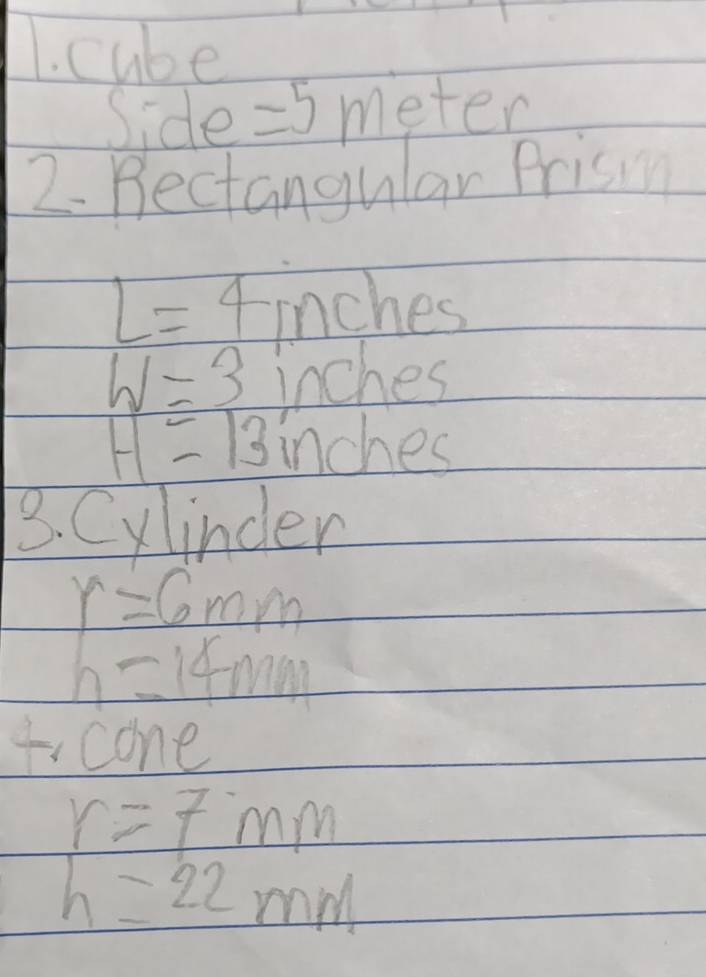 1. Cube
Side = 5 meter
2. Rectangular Prism
L = 4 inches
W = 3 inches
H = 13 inches
3. Cylinder
r = 6 mm
h = 14 mm
4. cone
r = 7 mm
h = 22 mm